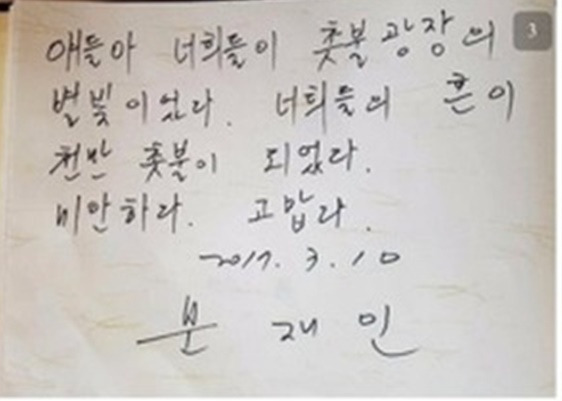 얘들아 너희들이 촛불광장의
별빛이었다. 너희들의 혼이
천만 촛불이 되었다.
미안하다. 고맙다.
2017. 3. 10
문재인
3